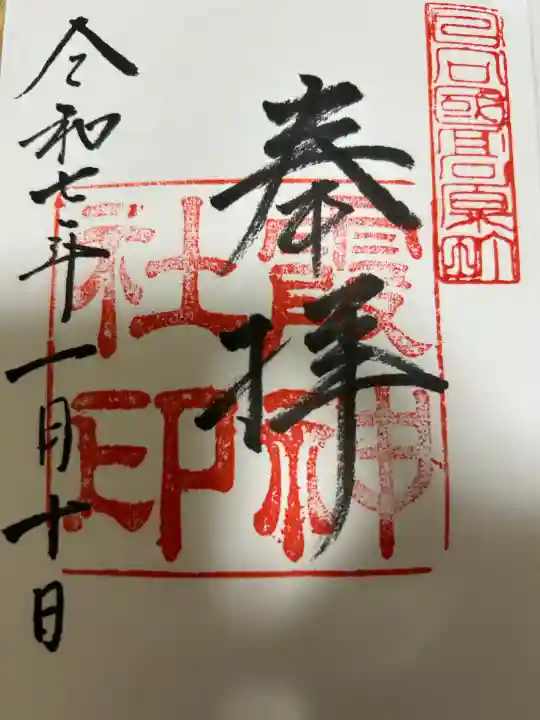 奉拝
霞神
社印
令和七年一月十日